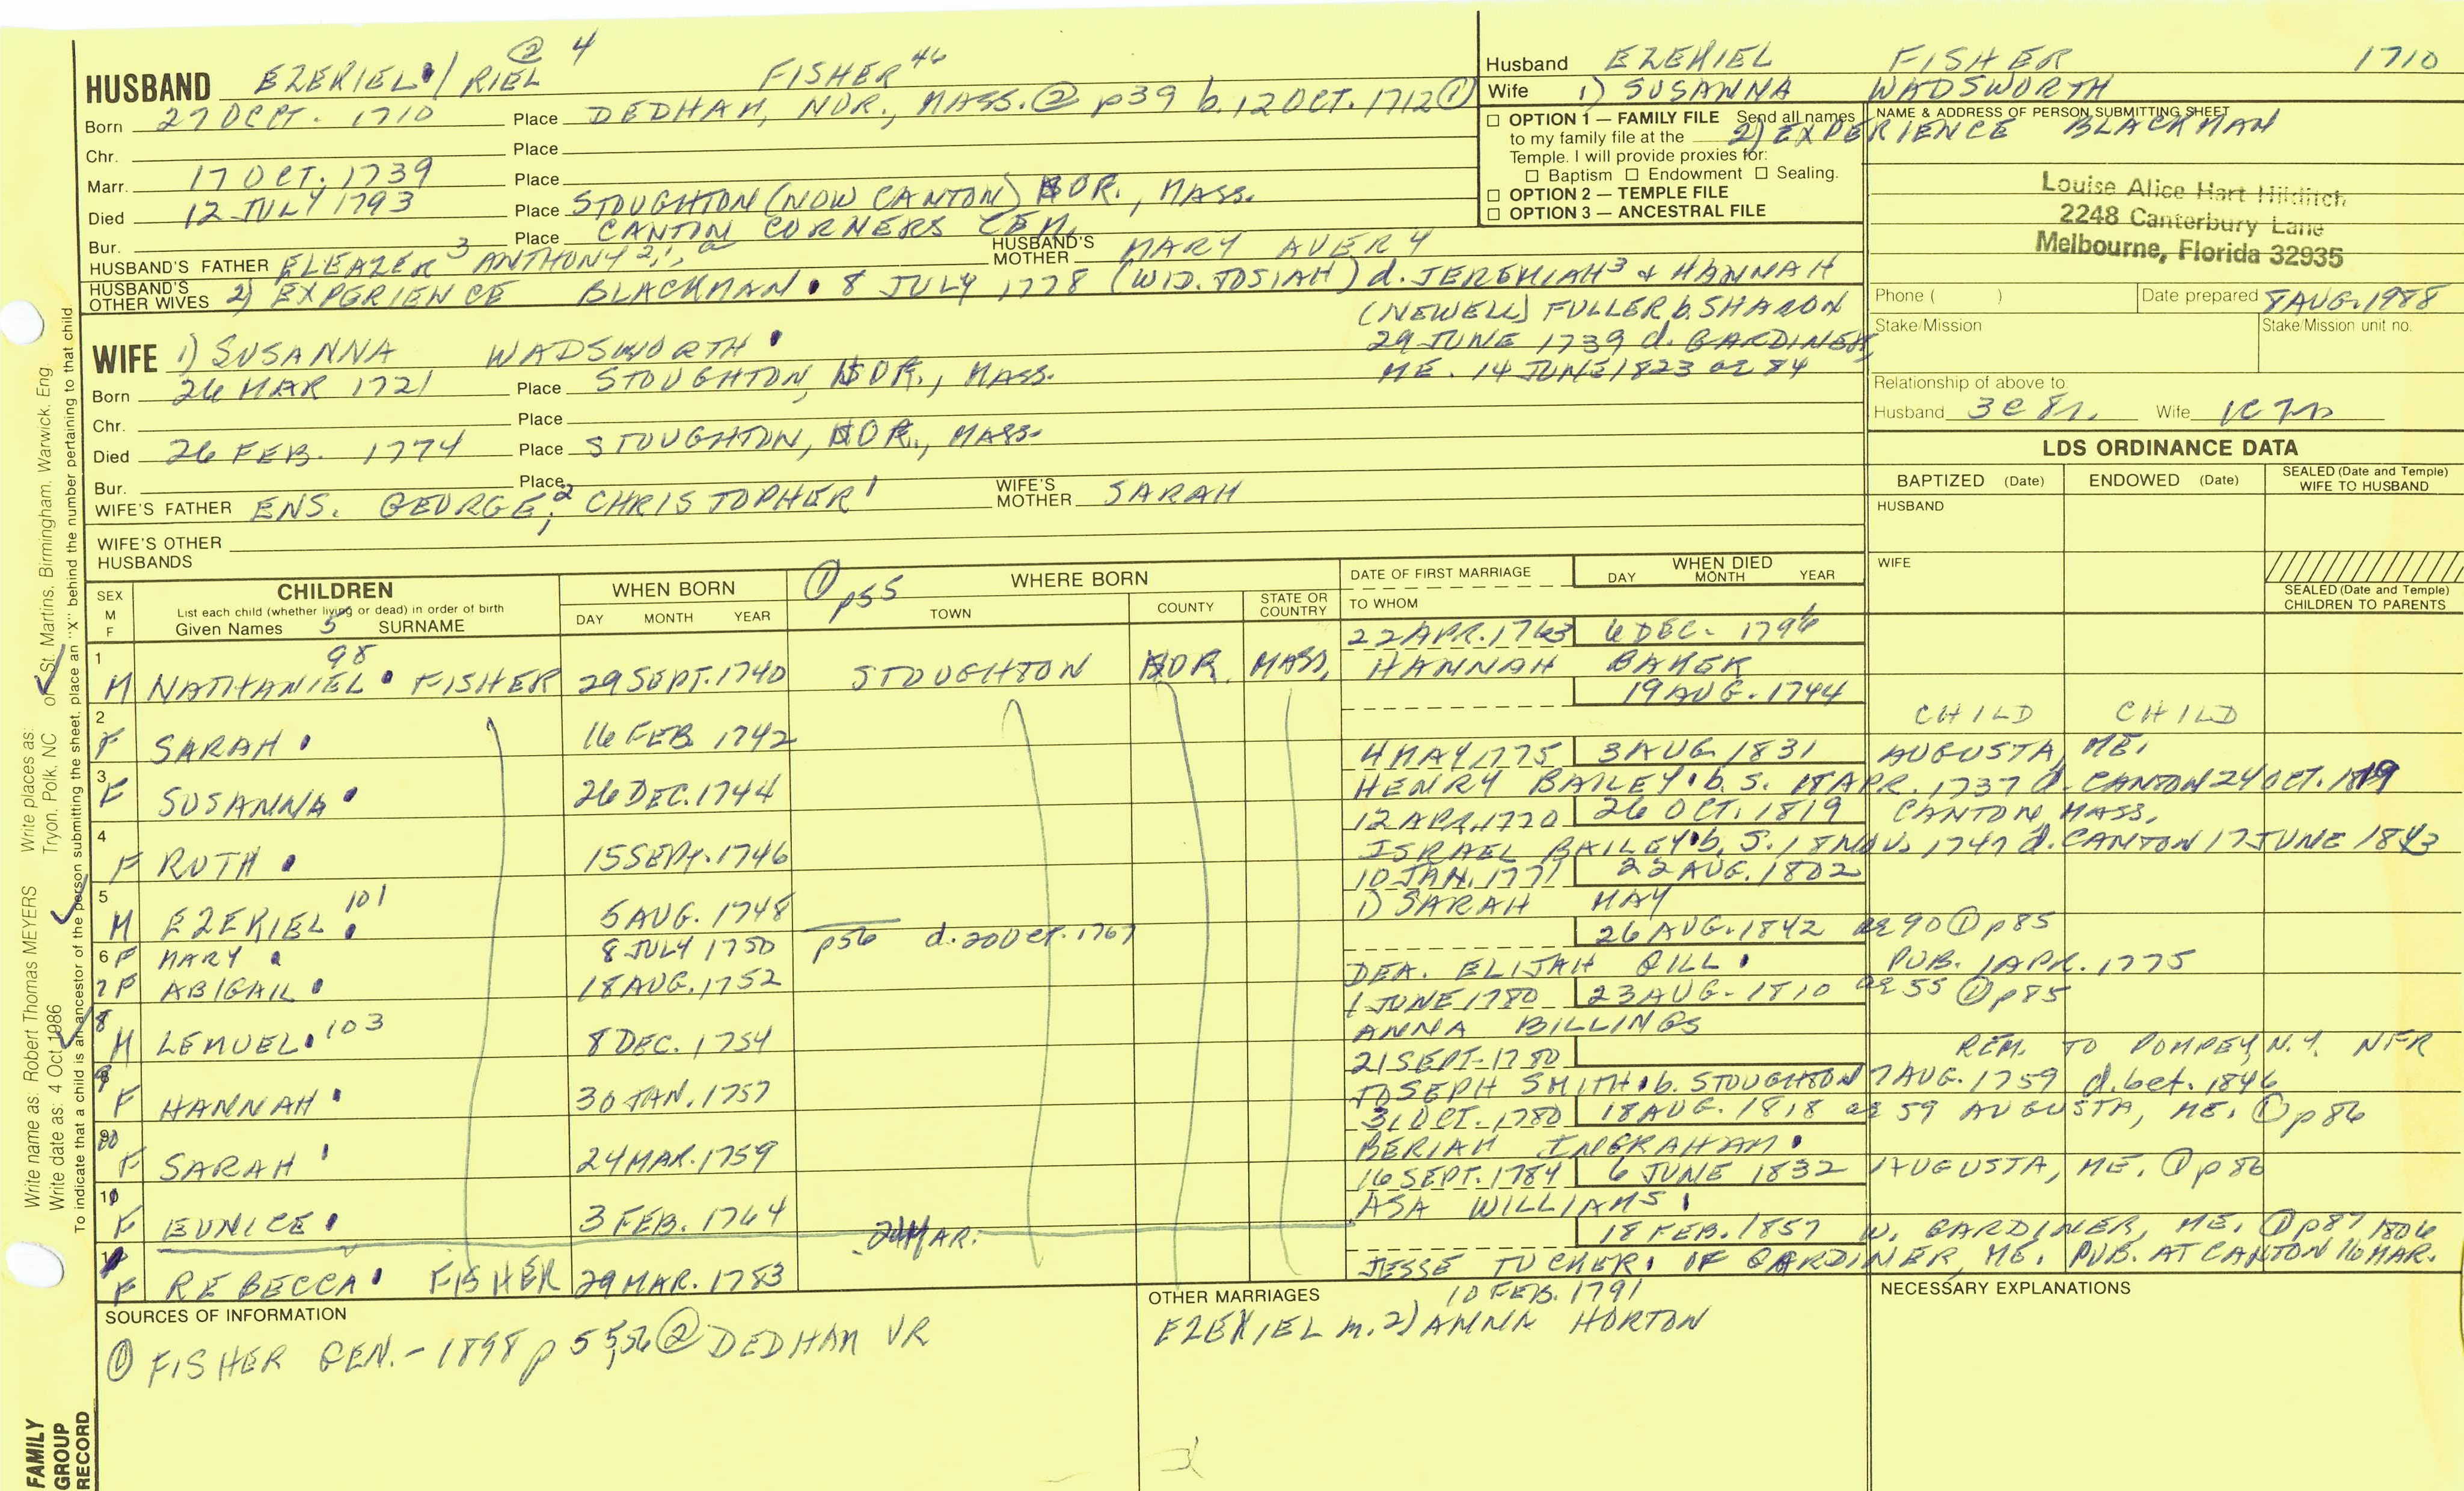 HUSBAND EZERIEL / RIEL ② 4 FISHER 46
Born 27 OCT. 1710 Place DEDHAM, NOR., MASS. ② p39 b. 12 OCT. 1712 ①
Chr. Place
Marr. 17 OCT. 1739 Place
Died 12 JULY 1793 Place STOUGHTON (NOW CANTON) NOR., MASS.
Bur. Place CANTON CORNERS CEM.
HUSBAND'S FATHER ELEAZER 3 ANTHONY 2,1, a HUSBAND'S MOTHER MARY AVERY
HUSBAND'S OTHER WIVES 2) EXPERIENCE BLACKMAN 8 JULY 1778 (WID. JOSIAH) d. JEREMIAH 3 & HANNAH
(NEWELL) FULLER b. SHARON
29 JUNE 1739 d. GARDINER,
ME. 14 JUNE 1823 ae 84
WIFE 1) SUSANNA WADSWORTH
Born 26 MAR 1721 Place STOUGHTON, NOR., MASS.
Chr. Place
Died 26 FEB. 1774 Place STOUGHTON, NOR., MASS.
Bur. Place
WIFE'S FATHER ENS. GEORGE, 2 CHRISTOPHER 1 WIFE'S MOTHER SARAH
WIFE'S OTHER HUSBANDS
Husband EZEKIEL FISHER 1710
Wife 1) SUSANNA WADSWORTH
2) EXPERIENCE BLACKMAN
☐ OPTION 1 — FAMILY FILE Send all names
to my family file at the
Temple. I will provide proxies for:
☐ Baptism ☐ Endowment ☐ Sealing.
☐ OPTION 2 — TEMPLE FILE
☐ OPTION 3 — ANCESTRAL FILE
NAME & ADDRESS OF PERSON SUBMITTING SHEET
Louise Alice Hart Hilditch
2248 Canterbury Lane
Melbourne, Florida 32935
Phone ( ) Date prepared 8 AUG. 1988
Stake/Mission Stake/Mission unit no.
Relationship of above to:
Husband 3C 8r. Wife 1C 7r
LDS ORDINANCE DATA
BAPTIZED (Date) ENDOWED (Date) SEALED (Date and Temple) WIFE TO HUSBAND
HUSBAND
WIFE
SEALED (Date and Temple) CHILDREN TO PARENTS
SEX M F CHILDREN List each child (whether living or dead) in order of birth Given Names 5 SURNAME
WHEN BORN DAY MONTH YEAR
① p55 WHERE BORN TOWN COUNTY STATE OR COUNTRY
DATE OF FIRST MARRIAGE TO WHOM
WHEN DIED DAY MONTH YEAR
22 APR. 1763 6 DEC. 1796
1 M NATHANIEL 98 FISHER 29 SEPT. 1740 STOUGHTON NOR. MASS. HANNAH BAKER
19 AUG. 1744
2 F SARAH 16 FEB. 1742 CHILD CHILD
4 MAY, 1775 3 AUG. 1831 AUGUSTA, ME.
3 F SUSANNA 26 DEC. 1744 HENRY BAILEY b. S. 18 APR. 1737 d. CANTON 24 OCT. 1819
12 APR. 1770 26 OCT. 1819 CANTON, MASS.
4 F RUTH 15 SEPT. 1746 ISRAEL BAILEY b. S. 18 NOV. 1747 d. CANTON 17 JUNE 1843
10 JAN. 1771 22 AUG. 1802
5 M EZERIEL 101 5 AUG. 1748 1) SARAH MAY
6 F MARY 8 JULY 1750 p56 d. 20 OCT. 1767
26 AUG. 1842 ae 90 ① p85
7 F ABIGAIL 18 AUG. 1752 DEA. ELIJAH GILL PUB. 1 APR. 1775
1 JUNE 1780 23 AUG. 1810 ae 55 ① p85
8 M LEMUEL 103 8 DEC. 1754 ANNA BILLINGS
21 SEPT. 1780 REM. TO POMPEY, N.Y. NFR
9 F HANNAH 30 JAN. 1757 JOSEPH SMITH b. STOUGHTON 7 AUG. 1759 d. bet. 1846
31 OCT. 1780 18 AUG. 1818 ae 59 AUGUSTA, ME. ① p86
10 F SARAH 24 MAR. 1759 BERIAH INGRAHAM
16 SEPT. 1784 6 JUNE 1832 AUGUSTA, ME. ① p86
11 F EUNICE 3 FEB. 1764 ASA WILLIAMS
18 FEB. 1857 W. GARDINER, ME. ① p87 1806
F REBECCA FISHER 29 MAR. 1783 JESSE TUCKER OF GARDINER, ME. PUB. AT CANTON 16 MAR.
SOURCES OF INFORMATION
① FISHER GEN. - 1898 p 55,56 ② DEDHAM VR
OTHER MARRIAGES 10 FEB. 1791
EZEKIEL m. 2) ANNA HORTON
NECESSARY EXPLANATIONS
Write name as: Robert Thomas MEYERS Write places as: Tryon, Polk, NC or St. Martins, Birmingham, Warwick, Eng.
Write date as: 4 Oct 1986
To indicate that a child is an ancestor of the person submitting the sheet, place an "X" behind the number pertaining to that child
FAMILY
GROUP
RECORD